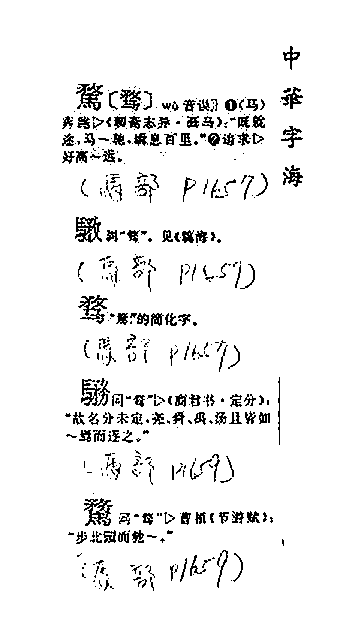 中華字海
騖〔骛〕wù 音误 ❶(马)
奔跑▷《聊斋志异·画马》:“既就
途,马一驰,瞬息百里。”❷追求▷
好高~远。
(馬部 P1657)
同“骛”。见《篇海》。
(馬部 P1659)
骛 “騖”的简化字。
(馬部 P1657)
同“骛”▷《商君书·定分》:
“故名分未定,尧、舜、禹、汤且皆如
~焉而逐之。”
(馬部 P1659)
同“骛”▷曹植《节游赋》:
“步北园而驰~。”
(馬部 P1659)